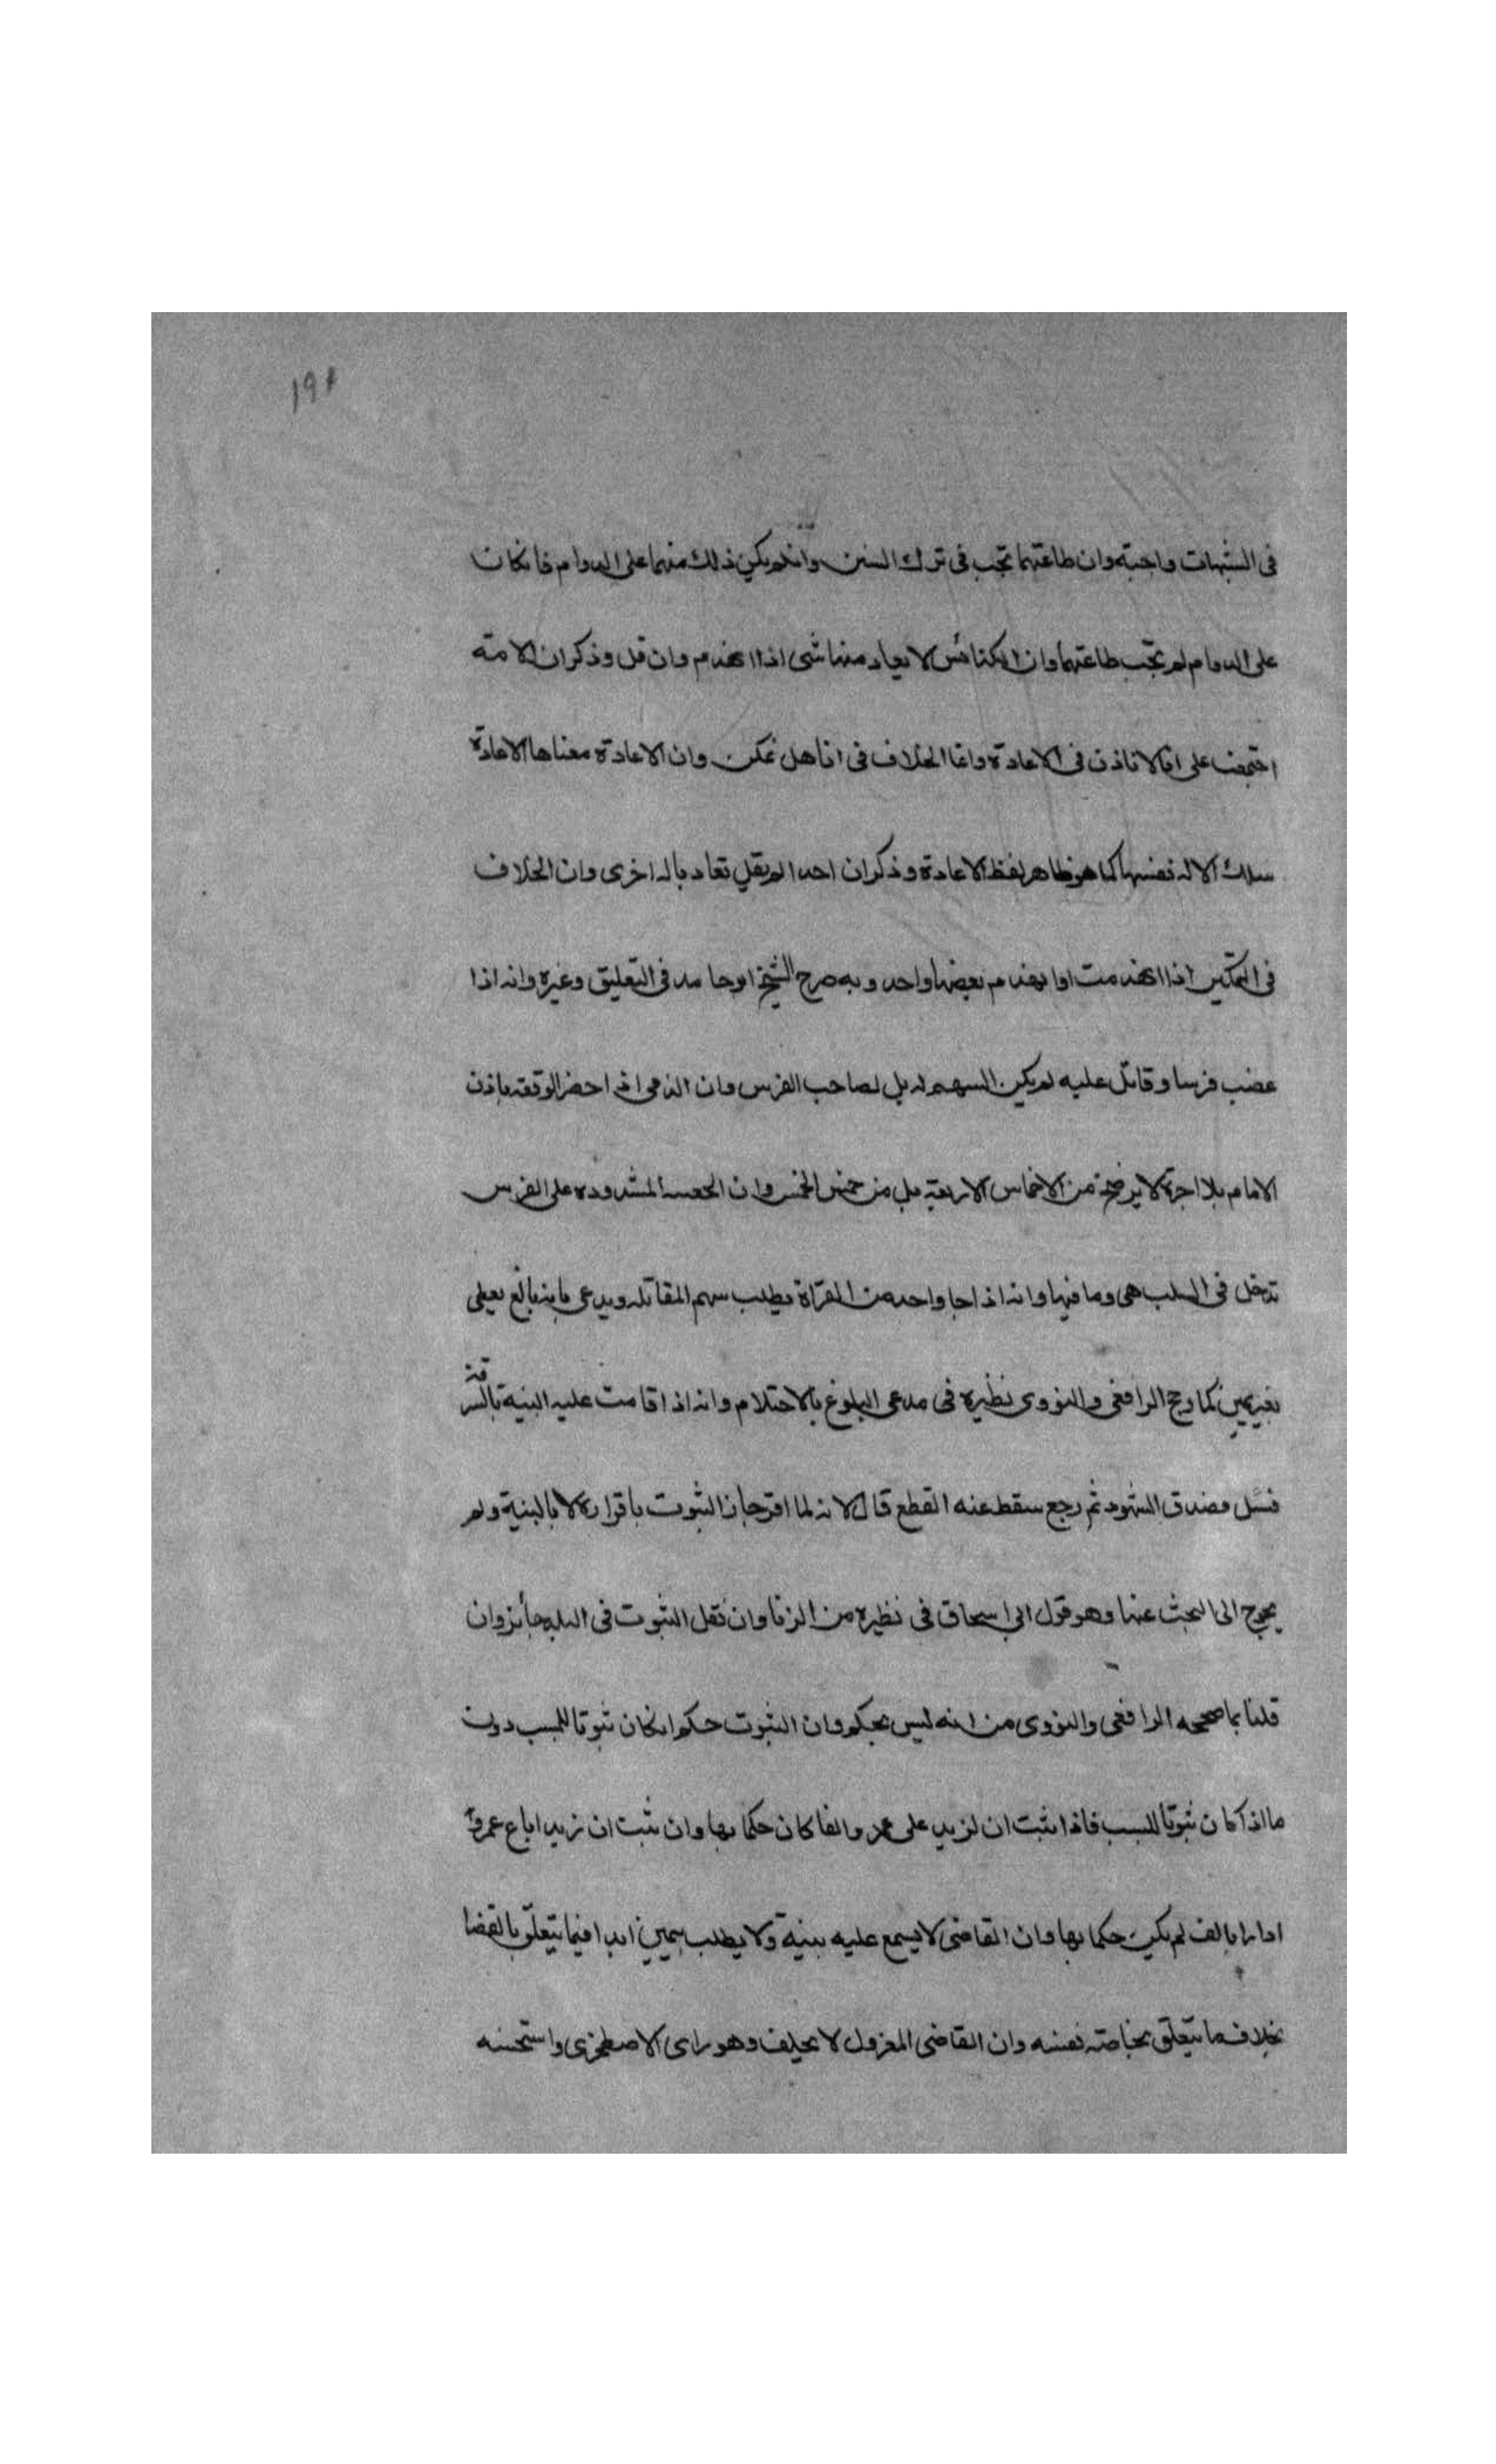 ١٩١
فى الشبهات واجبة وان طاعتهما تجب فى ترك السنن وان لم يكن ذلك منهما على الدوام فان كان
على الدوام لم تجب طاعتهما وان الكنائس لا يعاد منها شى اذا انهدم وان قل وذكر ان الامة
اجتمعت على انا لا ناذن فى الاعادة وانما الخلاف فى انا هل نمكن وان الاعادة معناها الاعادة
بتلك الالة نفسها كما هو ظاهر لفظ الاعادة وذكر ان احدا لم يقل تعاد بالة اخرى وان الخلاف
فى التمكين اذا انهدمت او انهدم بعضها واحد وبه صرح الشيخ ابو حامد فى التعليق وغيره وانه اذا
غصب فرسا وقاتل عليه لم يكن السهم له بل لصاحب الفرس وان الذمى اذا حضر الوقعة باذن
الامام بلا اجرة لا يرضخ من الاخماس الاربعة بل من خمس الخمس وان الحقيبة المشدودة على الفرس
تدخل فى السلب هى وما فيها وانه اذا جا واحد من الغزاة يطلب سهم المقاتلة ويدعى بانه بالغ يعطى
بغير يمين كما رجح الرافعى والنووى نظيره فى مدعى البلوغ بالاحتلام وانه اذا قامت عليه البينة بالسرقة
فسئل فصدق الشهود ثم رجع سقط عنه القطع قال لانه لما اقر جا الثبوت باقراره لا بالبينة ولم
يحوج الى البحث عنها وهو قول ابى اسحاق فى نظيره من الزنا وان نقل الثبوت فى البلد جائز وان
قلنا بما صححه الرافعى والنووى من انه ليس بحكم وان الثبوت حكم ان كان ثبوتا للمسبب دون
ما اذا كان ثبوتا للسبب فاذا ثبت ان لزيد على عمرو الفا كان حكما بها وان ثبت ان زيدا باع عمروا
دارا بالف لم يكن حكما بها وان القاضى لا يسمع عليه بينة ولا يطلب بيمين ابدا فيما يتعلق بالقضا
بخلاف ما يتعلق بخاصة نفسه وان القاضى المعزول لا يحلف وهو راى الاصطخرى واستحسنه